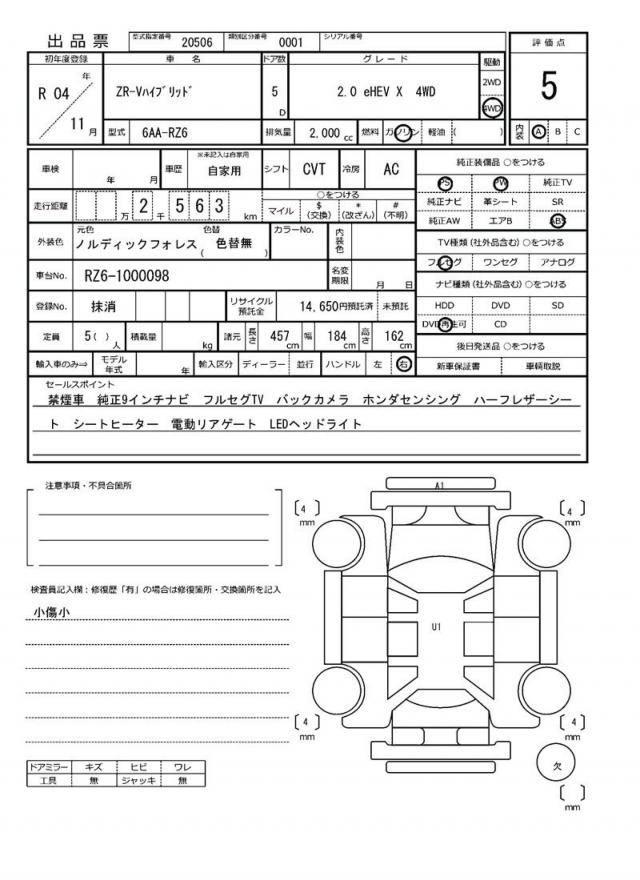 出品票 型式指定番号 20506 類別区分番号 0001 シリアル番号
初年度登録 車名 ドア数 グレード 駆動 評価点
R 04 年 11 月 ZR-Vﾊｲﾌﾞﾘｯﾄﾞ 5 D 2.0 eHEV X 4WD 2WD 4WD 5
型式 6AA-RZ6 排気量 2,000 cc 燃料 ガソリン 軽油 ( ) 内装 A B C
車検 年 月 車歴 ※未記入は自家用 自家用 シフト CVT 冷房 AC
走行距離 万 2 千 5 6 3 km ○をつける マイル $(交換) *(改ざん) #(不明)
外装色 元色 ノルディックフォレス 色替 ( 色替無 ) カラーNo. 内装色
車台No. RZ6-1000098 名変期限 月 日
登録No. 抹消 リサイクル預託金 14,650円預託済 未預託
定員 5( ) 人 積載量 kg 諸元 長さ 457 cm 幅 184 cm 高さ 162 cm
輸入車のみ⇒ モデル年式 年 輸入区分 ディーラー 並行 ハンドル 左 右
純正装備品 ○をつける
PS PW 純正TV
純正ナビ 革シート SR
純正AW エアB ABS
TV種類(社外品含む) ○をつける
フルセグ ワンセグ アナログ
ナビ種類(社外品含む) ○をつける
HDD DVD SD
DVD再生可 CD
後日発送品 ○をつける
新車保証書 車輌取説
セールスポイント
禁煙車 純正9インチナビ フルセグTV バックカメラ ホンダセンシング ハーフレザーシー
ト シートヒーター 電動リアゲート LEDヘッドライト
注意事項・不具合箇所
検査員記入欄：修復歴「有」の場合は修復箇所・交換箇所を記入
小傷小
ドアミラー キズ ヒビ ワレ
工具 無 ジャッキ 無
A1
[ 4 ] mm [ 4 ] mm
U1
[ 4 ] mm [ 4 ] mm
欠
[ ] mm